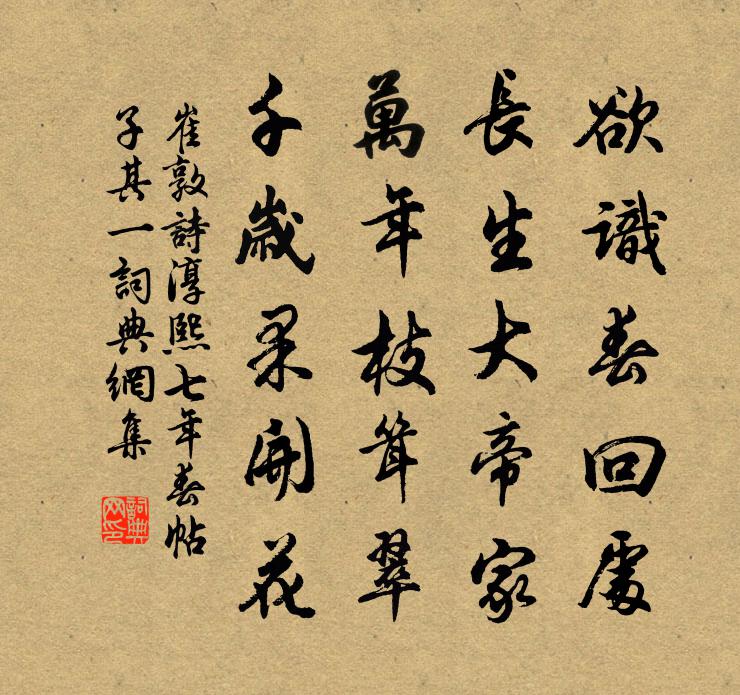 欲識春回處
長生大帝家
萬年枝聳翠
千歲果開花
崔敦詩淳熙七年春帖
子其一詞典網集
詞典网印